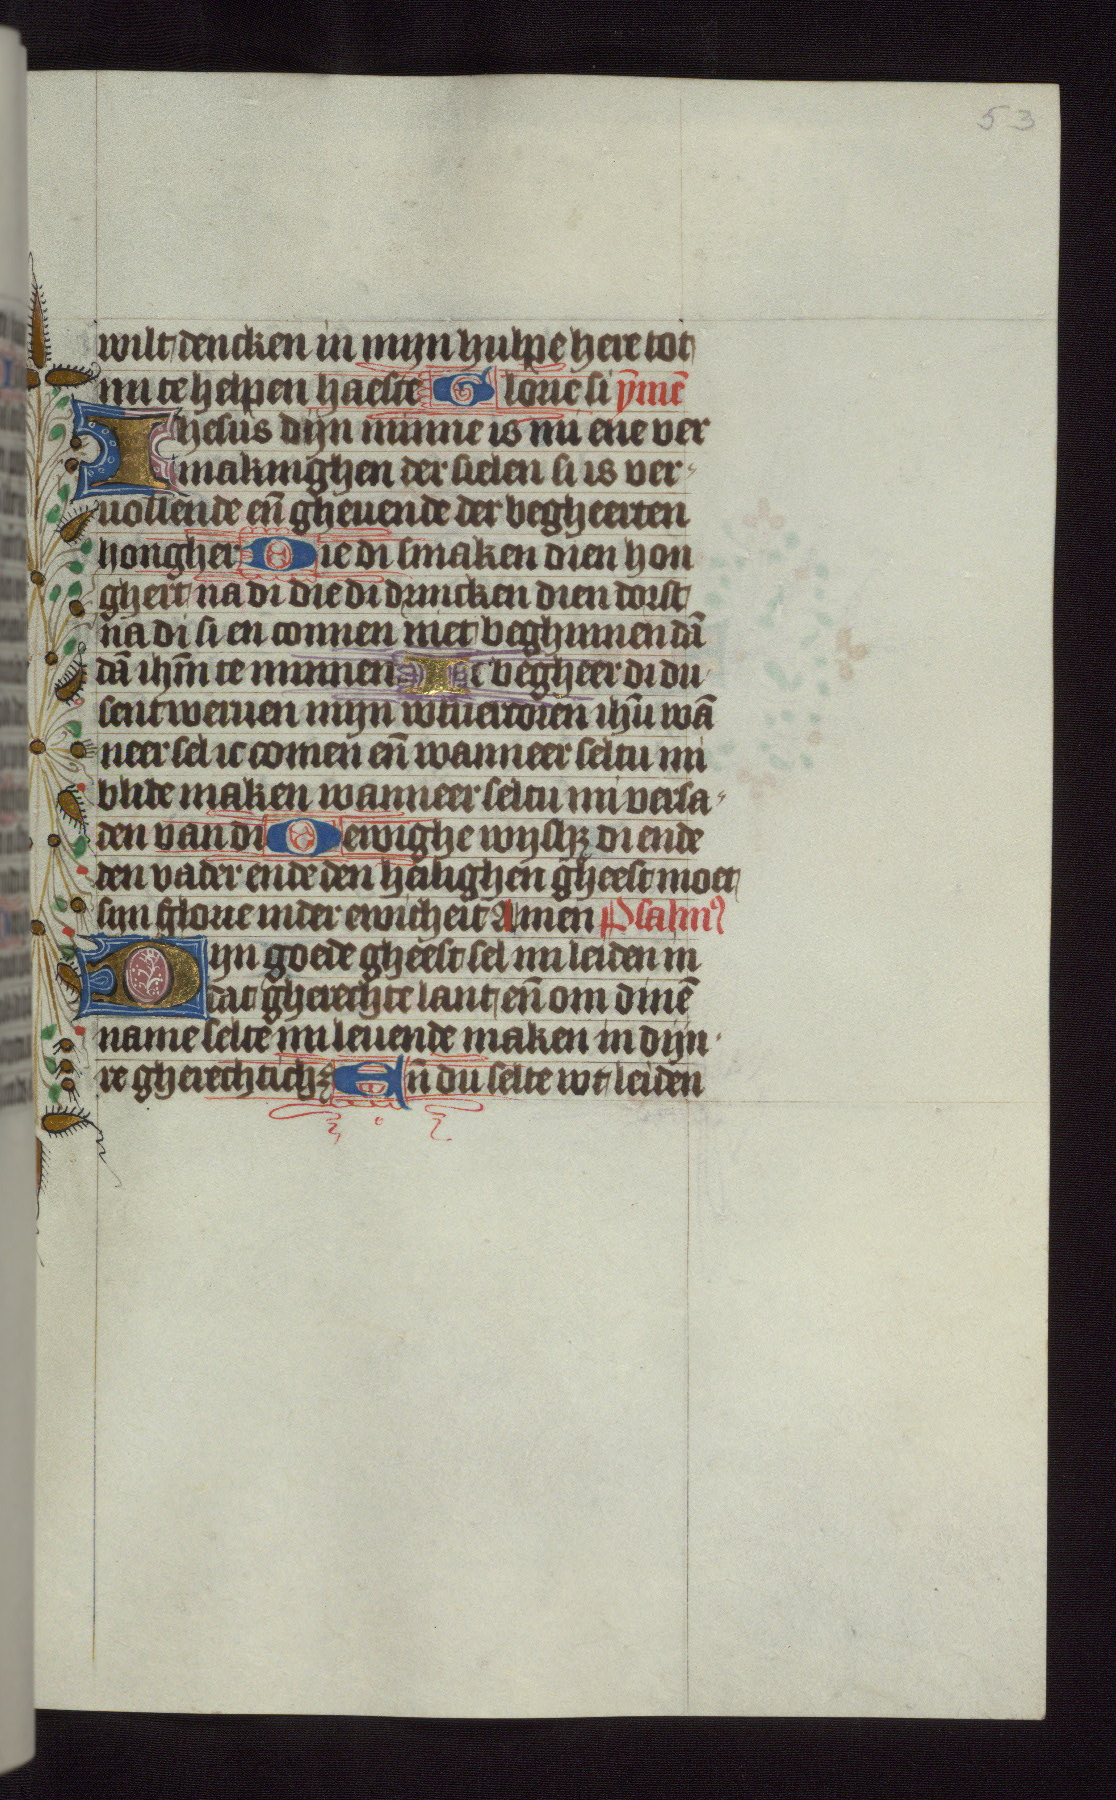 53
wilt dencken in mijn hulpe here tot
mi te helpen haeste Glorie si ȳmē
Ihesus dijn minne is nu ene ver
makinghen der sielen si is ver
vollende eñ ghevende der begheerten
hongher Die di smaken dien hon
ghert na di die di drincken dien dorst
na di si en connen niet beghinnen dā
dā ihm̄ te minnen Ic begheer di du
sent werven mijn wtvercoren ihū wā
neer sel ic comen eñ wanneer seltu mi
blide maken wanneer seltu mi versa
den van di Dewighe wijshz di ende
den vader ende den heilighen gheest moet
sijn glorie inder ewicheit Amen Psalmꝰ
Dijn goede gheest sel mi leiden in
dat gherechte lant eñ om dinē
name selte mi levende maken in dijn
re gherechtichz Eñ du selte wt leiden